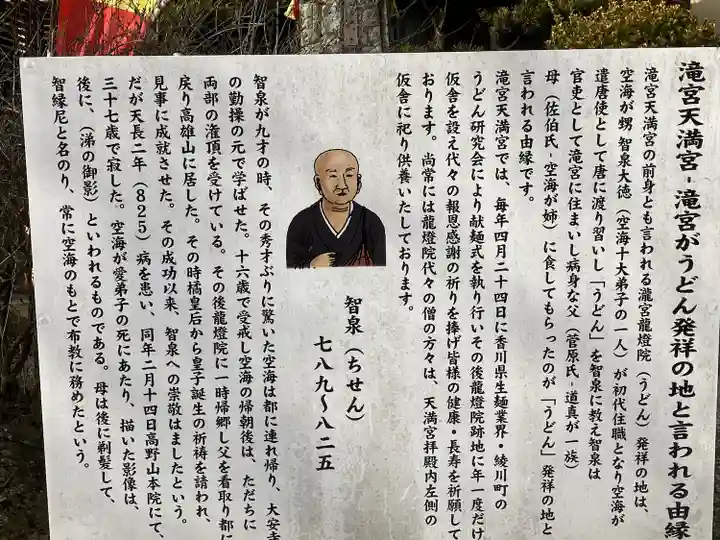 滝宮天満宮-滝宮がうどん発祥の地と言われる由縁
滝宮天満宮の前身とも言われる瀧宮龍燈院(うどん)発祥の地は、
空海が甥 智泉大徳(空海十大弟子の一人)が初代住職となり空海が
遣唐使として唐に渡り習いし「うどん」を智泉に教え智泉は
官吏として滝宮に住まいし病身な父(菅原氏-道真が一族)
母(佐伯氏-空海が姉)に食してもらったのが「うどん」発祥の地と
言われる由縁です。
滝宮天満宮では、毎年四月二十四日に香川県生麺業界・綾川町の
うどん研究会により献麺式を執り行いその後龍燈院跡地に年一度だけ
仮舎を設え代々の報恩感謝の祈りを捧げ皆様の健康・長寿を祈願して
おります。尚常には龍燈院代々の僧の方々は、天満宮拝殿内左側の
仮舎に祀り供養いたしております。
智泉(ちせん)
七八九〜八二五
智泉が九才の時、その秀才ぶりに驚いた空海は都に連れ帰り、大安寺
の勤操の元で学ばせた。十六歳で受戒し空海の帰朝後は、ただちに
両部の潅頂を受けている。その後龍燈院に一時帰郷し父を看取り都に
戻り高雄山に居した。その時橘皇后から皇子誕生の祈祷を請われ、
見事に成就させた。その成功以来、智泉への崇敬はましたという。
だが天長二年(825)病を患い、同年二月十四日高野山本院にて、
三十七歳で寂した。空海が愛弟子の死にあたり、描いた影像は、
後に、(涕の御影)といわれるものである。母は後に剃髪して、
智縁尼と名のり、常に空海のもとで布教に務めたという。